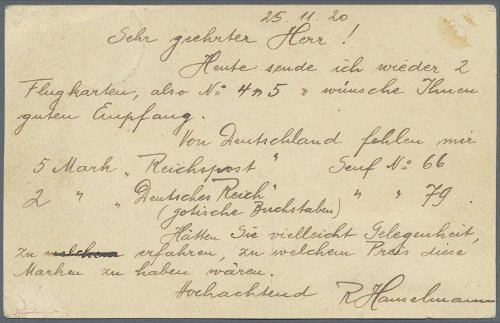 25.11.20
Sehr geehrter Herr!
Heute sende ich wieder 2
Flugkarten, also No 4 & 5 u wünsche Ihnen
guten Empfang.
Von Deutschland fehlen mir
5 Mark „Reichspost" Senf No 66
2 " „Deutsches Reich" " " 79.
(gotische Buchstaben)
Hätten Sie vielleicht Gelegenheit,
zu erfahren, zu welchem Preis diese
Marken zu haben wären.
Hochachtend R. Hanselmann